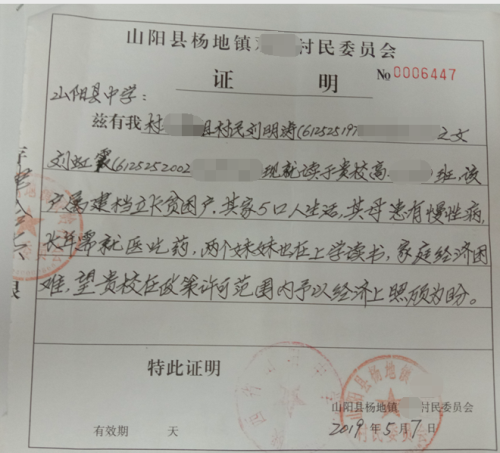 山阳县杨地镇 村民委员会
证 明
No 0006447
山阳县中学:
兹有我村 组村民刘明涛(61252519 之女
刘虹霞(6125252002 现就读于贵校高 班,该
户属建档立卡贫困户,其家5口人生活,其母患有慢性病,
长年需就医吃药,两个妹妹也在上学读书,家庭经济困
难,望贵校在政策许可范围内予以经济上照顾为盼。
特此证明
山阳县杨地镇 村民委员会
有效期 天
2019年5月7日
山阳县杨地镇
村民委员会